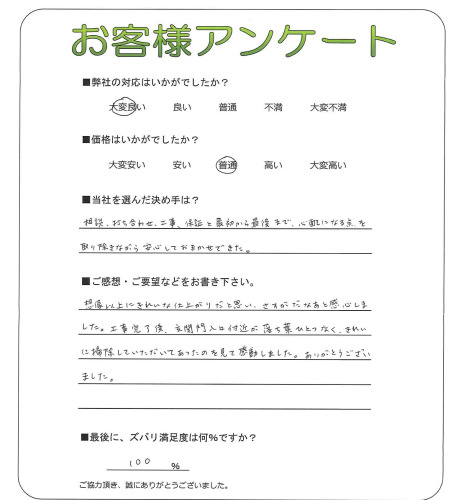 お客様アンケート
■弊社の対応はいかがでしたか？
大変良い 良い 普通 不満 大変不満
■価格はいかがでしたか？
大変安い 安い 普通 高い 大変高い
■当社を選んだ決め手は？
相談、打ち合わせ、工事、保証と最初から最後まで、心配になる点を
取り除きながら安心しておまかせできた。
■ご感想・ご要望などをお書き下さい。
想像以上にきれいな仕上がりだと思い、さすがだなあと感心しま
した。工事完了後、玄関門入口付近が落ち葉ひとつなく、きれい
に掃除していただいてあったのを見て感動しました。ありがとうござい
ました。
■最後に、ズバリ満足度は何％ですか？
100 ％
ご協力頂き、誠にありがとうございました。